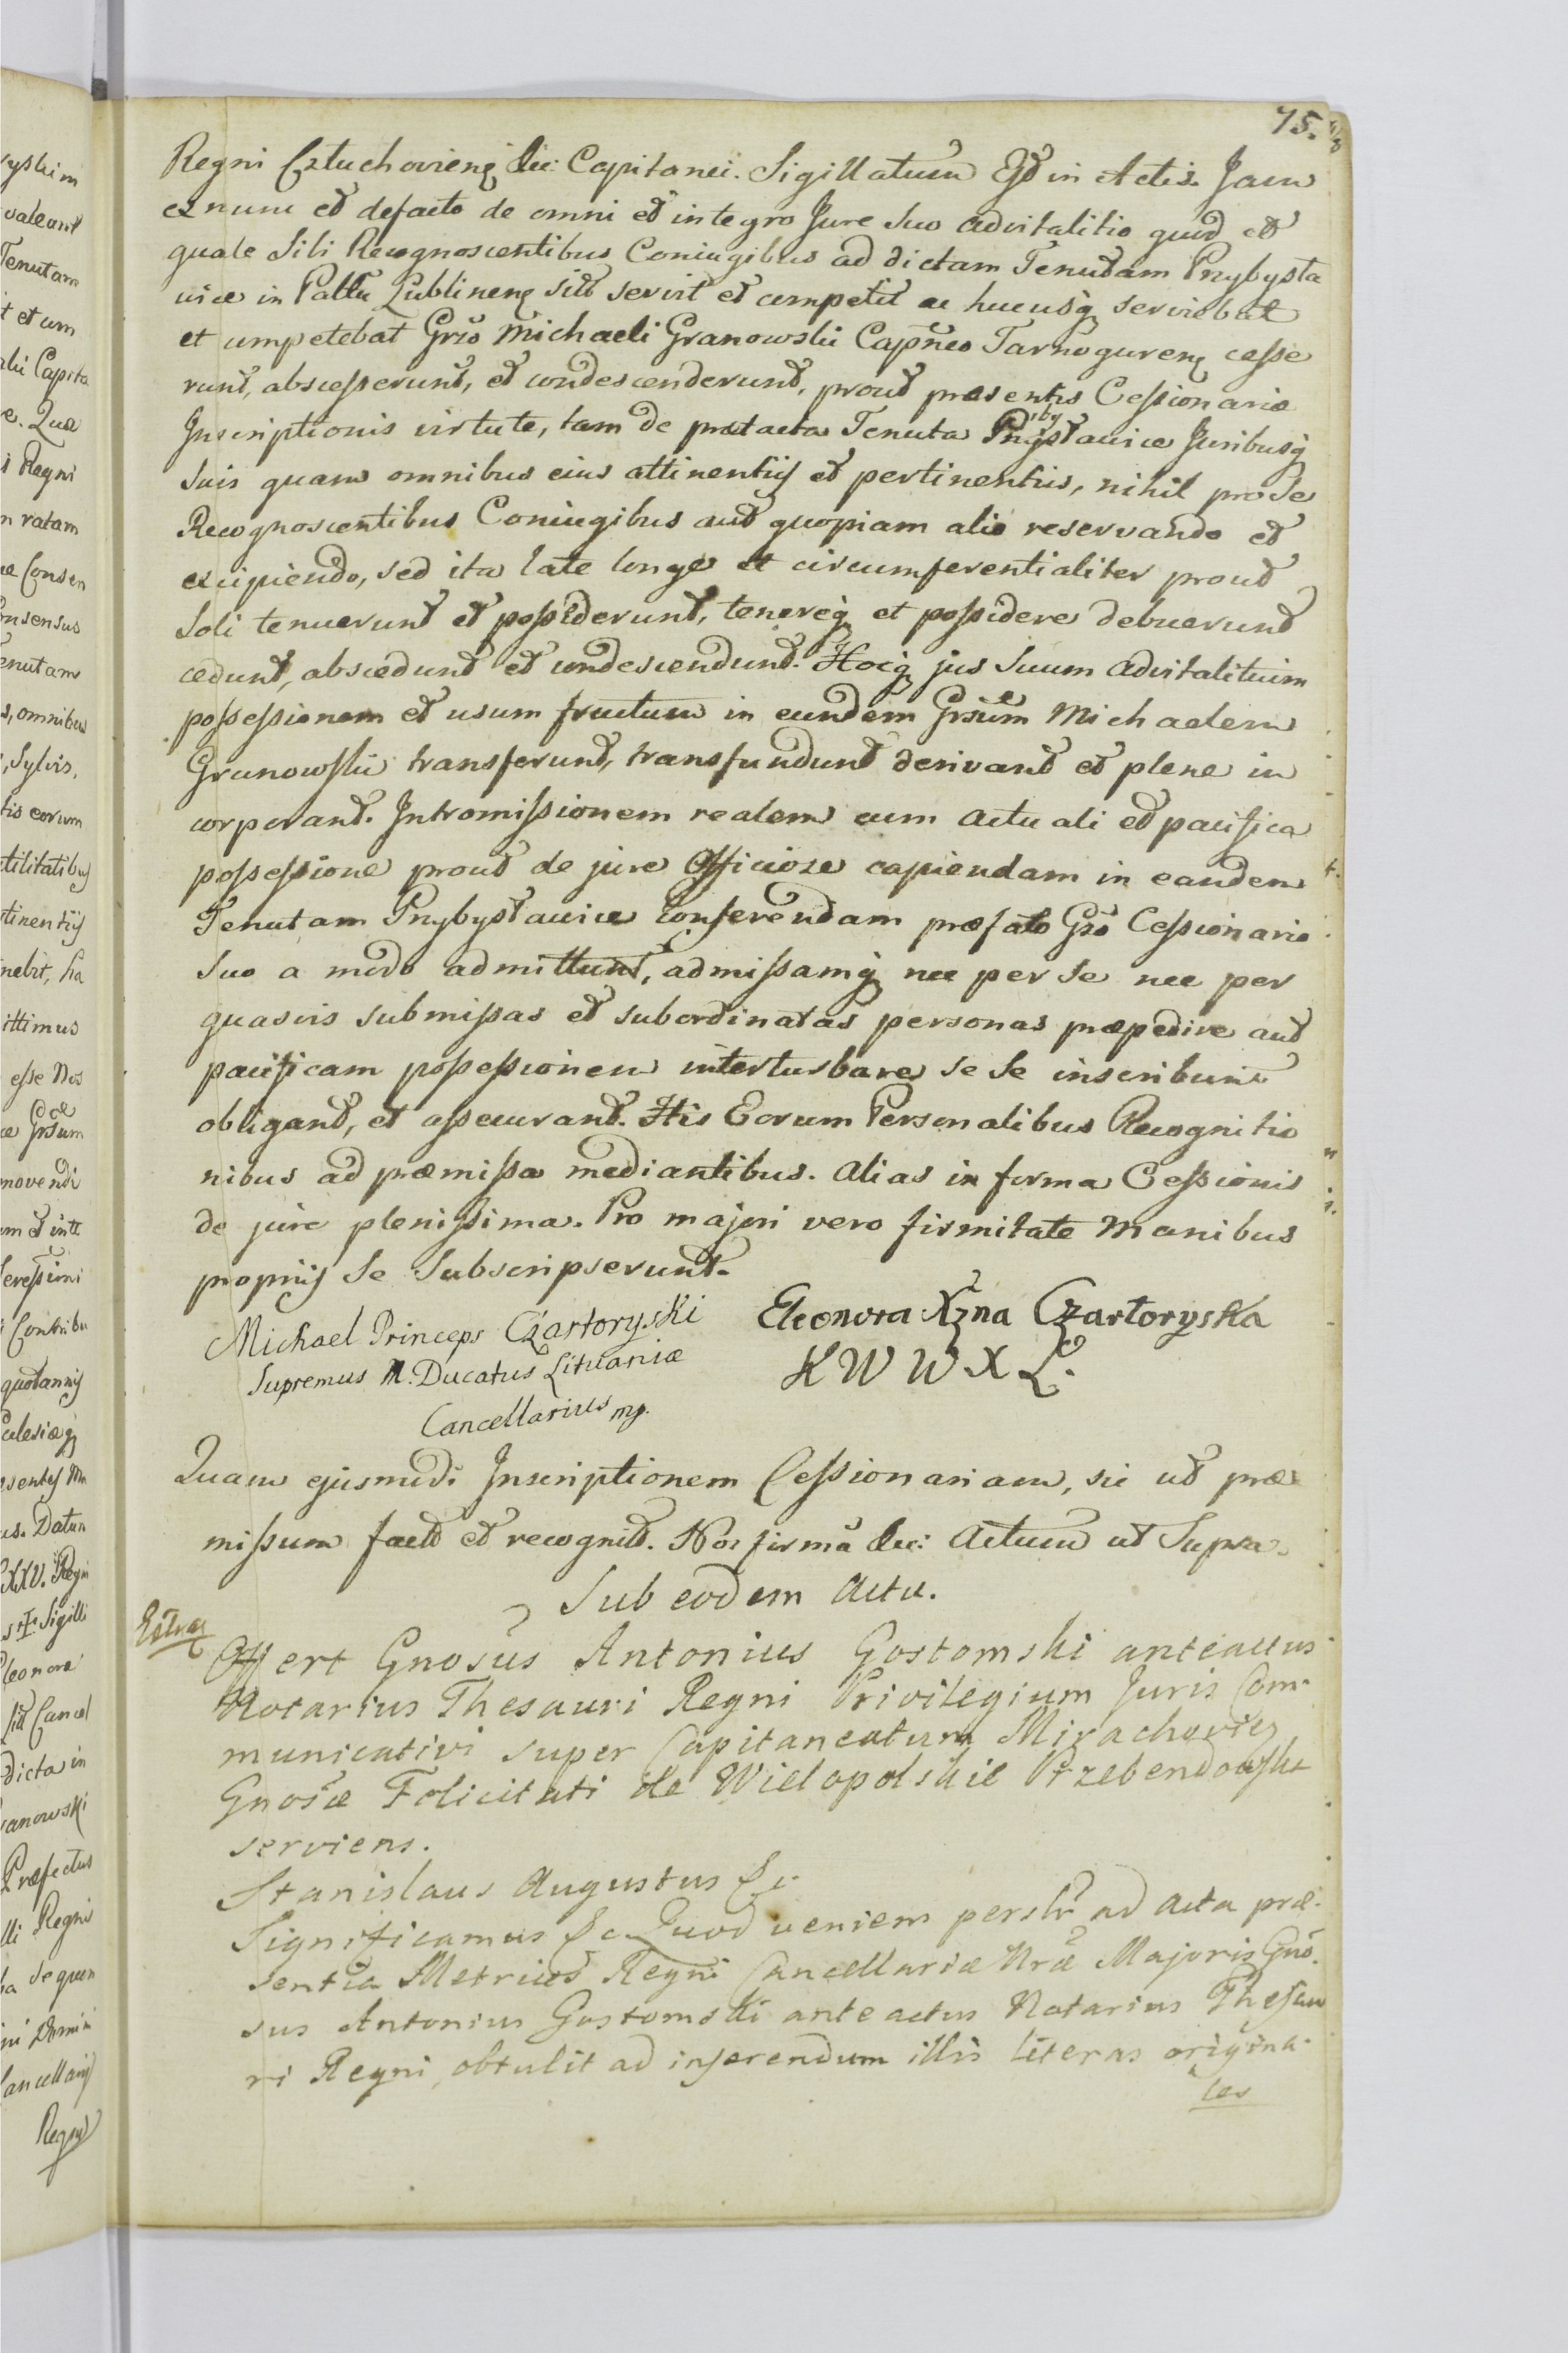 75.
Regni Człuchovienꝫ &c: Capitanei. Sigillatum Est in Actis. Jam
ex nunc et defacto de omni et integro Jure Suo advitalitio quod et
quale Sibi Recognoscentibus Coniugibus ad dictam Tenutam Przybysła
vice in Pallū Lublinenꝫ sitt servit et competit ac hucusqꝫ serviebat
et competebat Grso Michaeli Granowski Capneo Tarnogurenꝫ cesse
runt, abscesserunt, et condescenderunt, prout præsentis Cessionariæ
Inscriptionis virtute, tam de prætacta Tenuta Przybysławice Juribusqꝫ
Suis quam omnibus eius attinentijs et pertinentiis, nihil pro Se
Recognoscentibus Coniugibus aut quopiam alio reservando et
excipiendo, sed ita late longe et circumferentialiter prout
Soli tenuerunt et possederunt, tenereqꝫ et possidere debuerunt
cedunt, abscedunt et condescendunt. Hocqꝫ jus Suum advitalitium
possessionem et usum fructum in eundem Grsum Michaelem
Granowski transferunt, transfundunt derivant et plene in
corporant. Intromissionem realem cum actuali et pacifica
possessione prout de jure Officiose capiendam in eandem
Tenutam Przybysławice conferendam præfato Grso Cessionario
Suo a modo admittunt, admissamqꝫ nec per Se nec per
quasvis submissas et subordinatas personas præpedire aut
pacificam possessionem interturbare se Se inscribunt
obligant, et assecurant. His Eorum Personalibus Recognitio
nibus ad præmissa mediantibus. Alias in forma Cessionis
de jure plenissima. Pro majori vero firmitate Manibus
propriis Se Subscripserunt.
Michael Princeps Czartoryski
Supremus M. Ducatus Lituaniæ
Cancellarius mp.
Eleonora Xżna Czartoryska
K W W X L.
Quam ejusmodi Inscriptionem Cessionariam, sic ut præ
missum factt et recognitt. Nos firmā &c: Actum ut Supra.
Sub eodem Actu.
Offert Gnosus Antonius Gostomski anteactus
Notarius Thesauri Regni Privilegium Juris Com-
municativi super Capitaneatum Mirachoviensꝫ
Gnosæ Felicitati de Wielopolskie Przebendowska
serviens.
Stanislaus Augustus &c.
Significamus &c. Quod veniens persltr ad Acta præ-
sentia Metrices Regni Cancellariæ Nræ Majoris Gno-
sus Antonius Gostomski ante actus Notarius Thesau
ri Regni, obtulit ad inserendum illis literas origina-
les